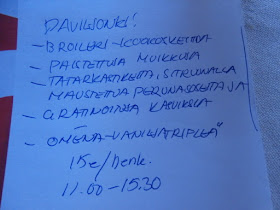 PAVILJONKI!
- BROILERI-KOOKOSKEITTOA
- PAISTETTUJA MUIKKUJA
- TATARKASTIKETTA, SITRUUNALLA
MAUSTETTUA PERUNASOSETTA JA
- GRATINOITUJA KASVIKSIA
- OMENA-VANILJATRIFLEÄ
15e/henk.
11.00-15.30